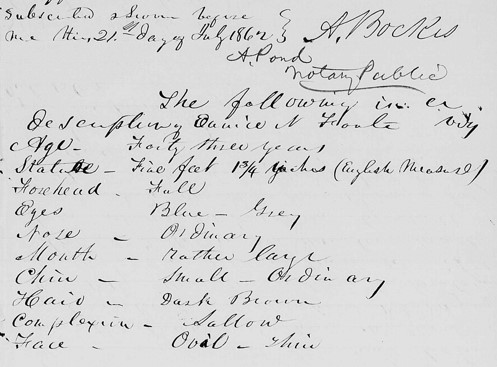 Subscribed & Sworn before
me this 21st day of July 1862 } A. Bockes
A. Pond
Notary Public
The following is a
description of Eunice N Foote viz
Age - Forty three years
Stature - Five feet 1 3/4 inches (English Measure)
Forehead - Full
Eyes Blue - Grey
Nose - Ordinary
Mouth - rather large
Chin - Small - Ordinary
Hair - Dark Brown
Complexion - Sallow
Face - Oval - thin